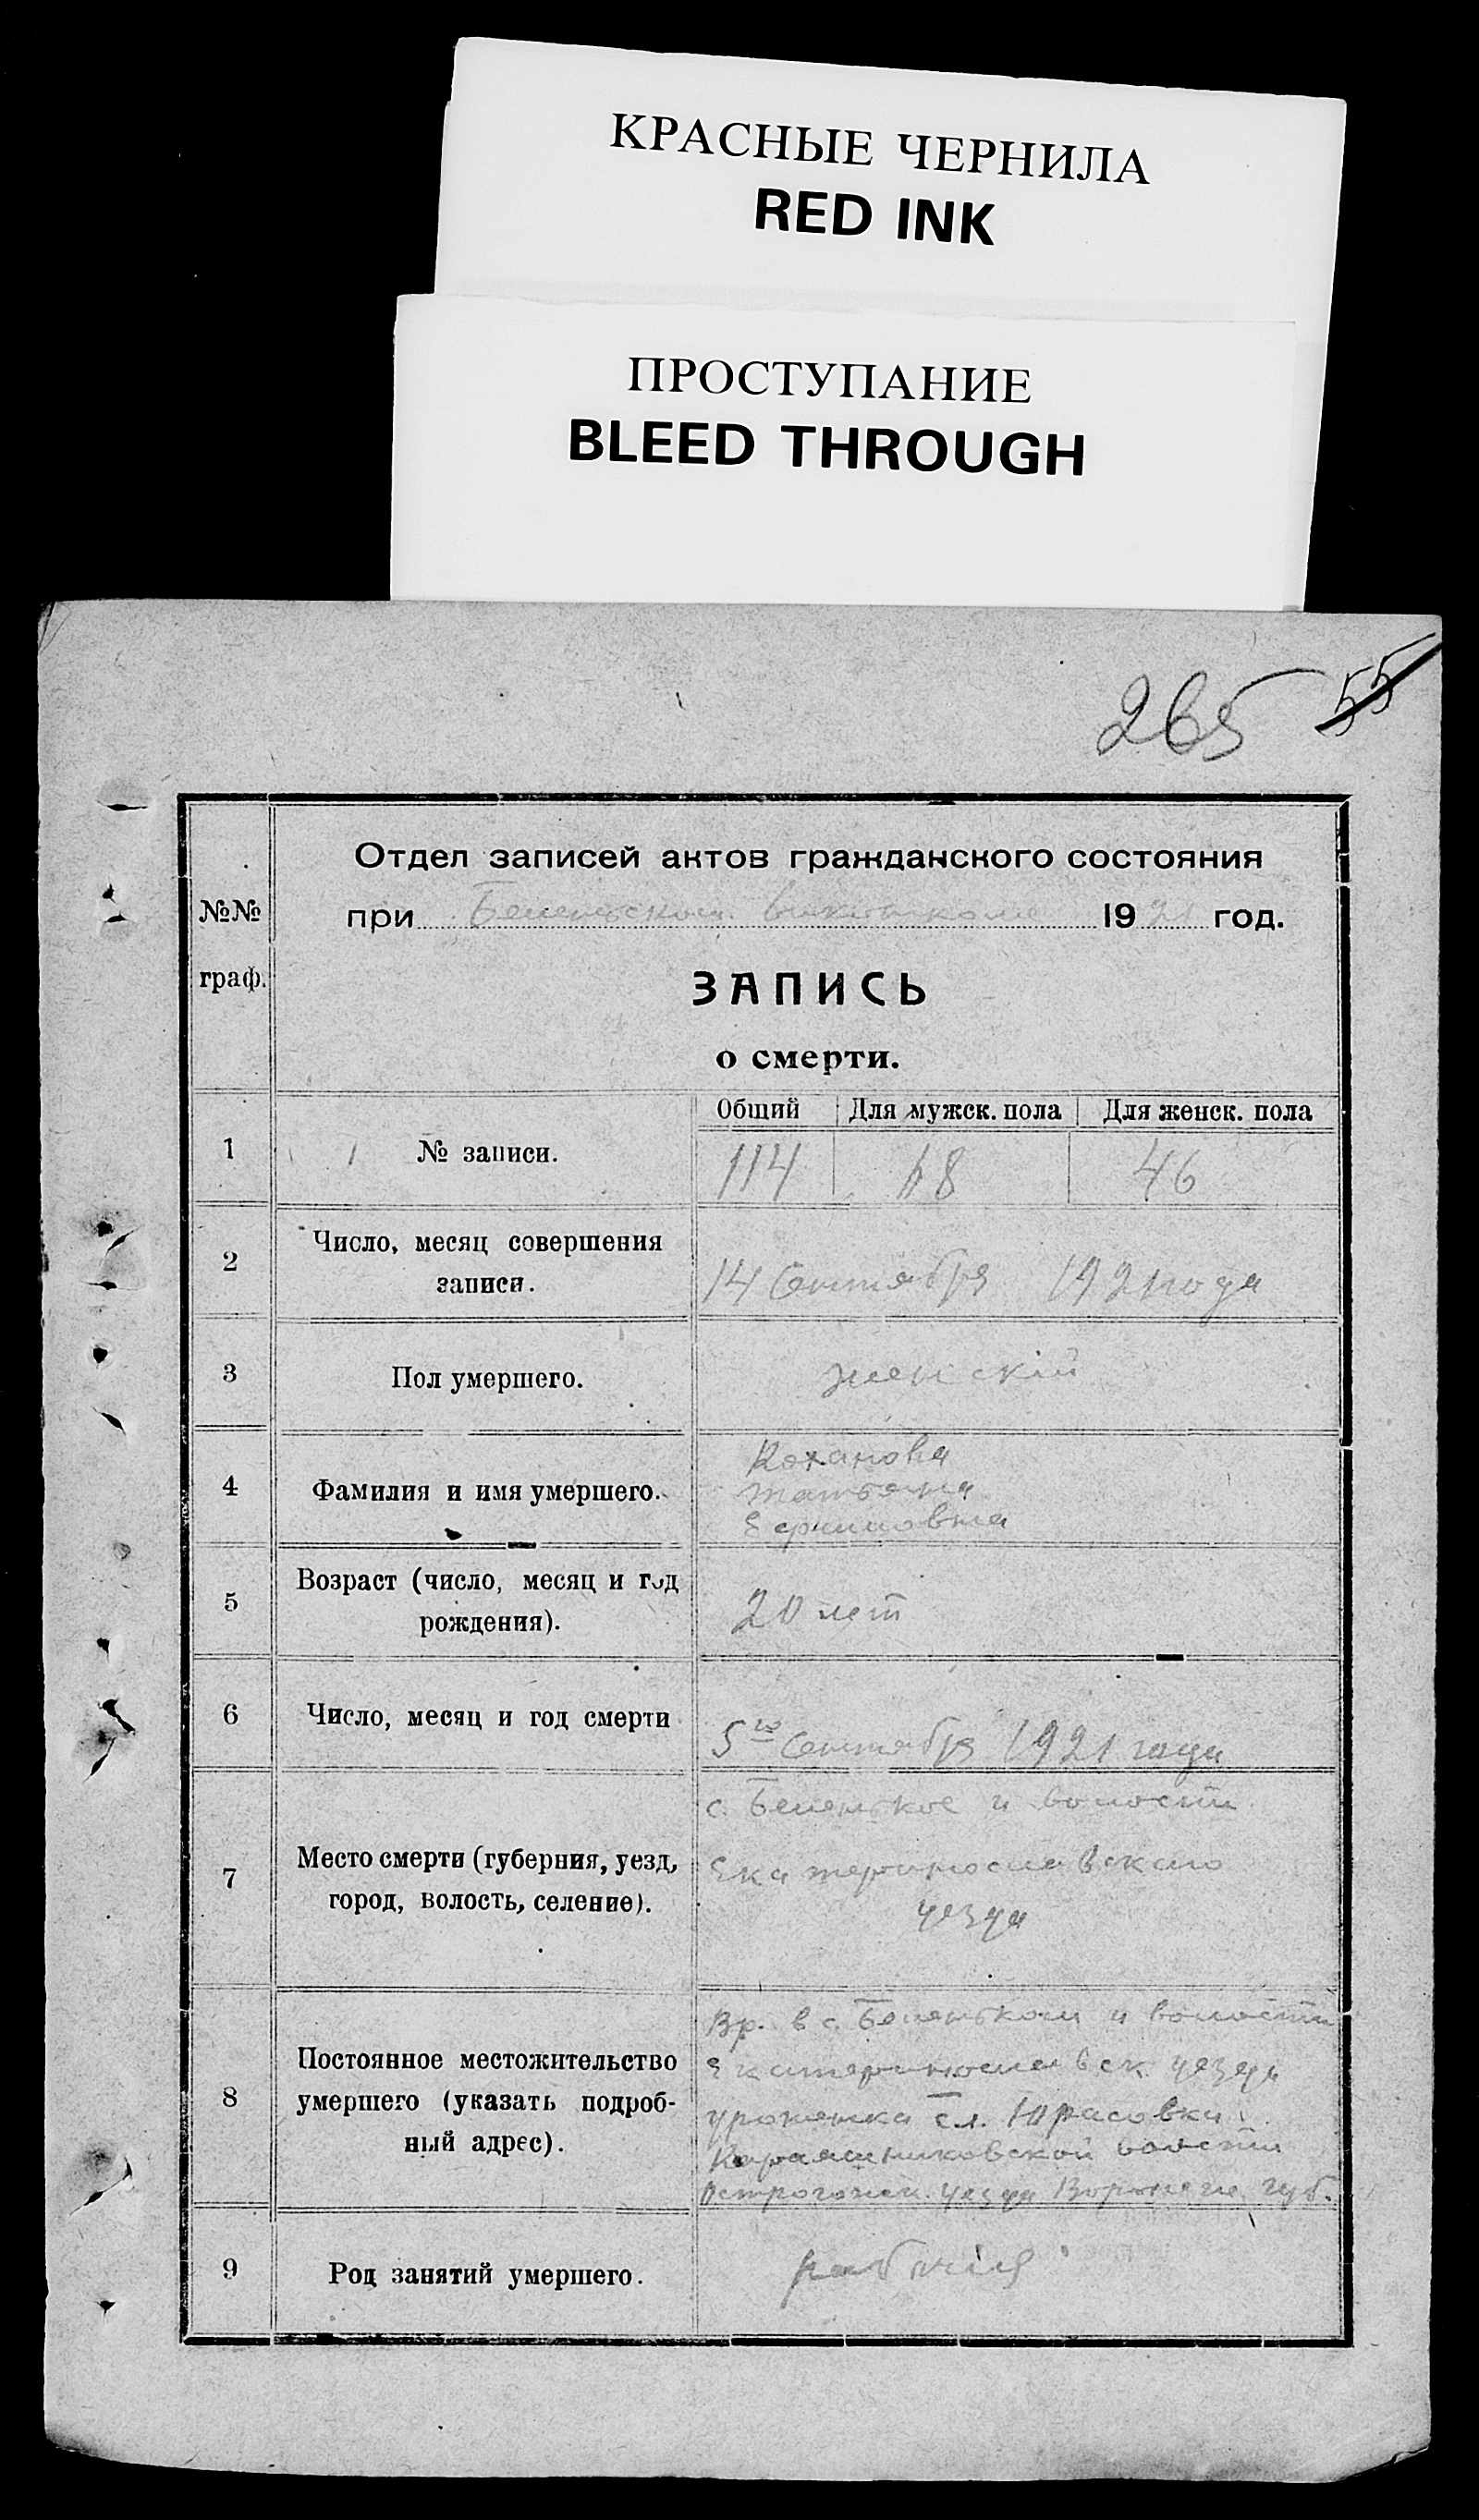 КРАСНЫЕ ЧЕРНИЛА
RED INK
ПРОСТУПАНИЕ
BLEED THROUGH
265 55
Отдел записей актов гражданского состояния
№№ при 1921 год.
граф.
ЗАПИСЬ
о смерти.
Общий Для мужск. пола Для женск. пола
1 № записи. 114 68 46
2 Число, месяц совершения
записи. 14 Сентября 1921 года
3 Пол умершего. женскій
4 Фамилия и имя умершего.
Коханова
Татьяна
Ефимовна
5 Возраст (число, месяц и год
рождения). 20 лет
6 Число, месяц и год смерти
5го Сентября 1921 года
7 Место смерти (губерния, уезд,
город, волость, селение).
с. Беленькое и волости
Екатеринославскаго
уезда
8 Постоянное местожительство
умершего (указать подроб-
ный адрес).
Вр. в с. Беленьком и волости
Екатеринославск. уезда
сл. Юрасовка
Караяшниковской волости
уезда губ.
9 Род занятий умершего.